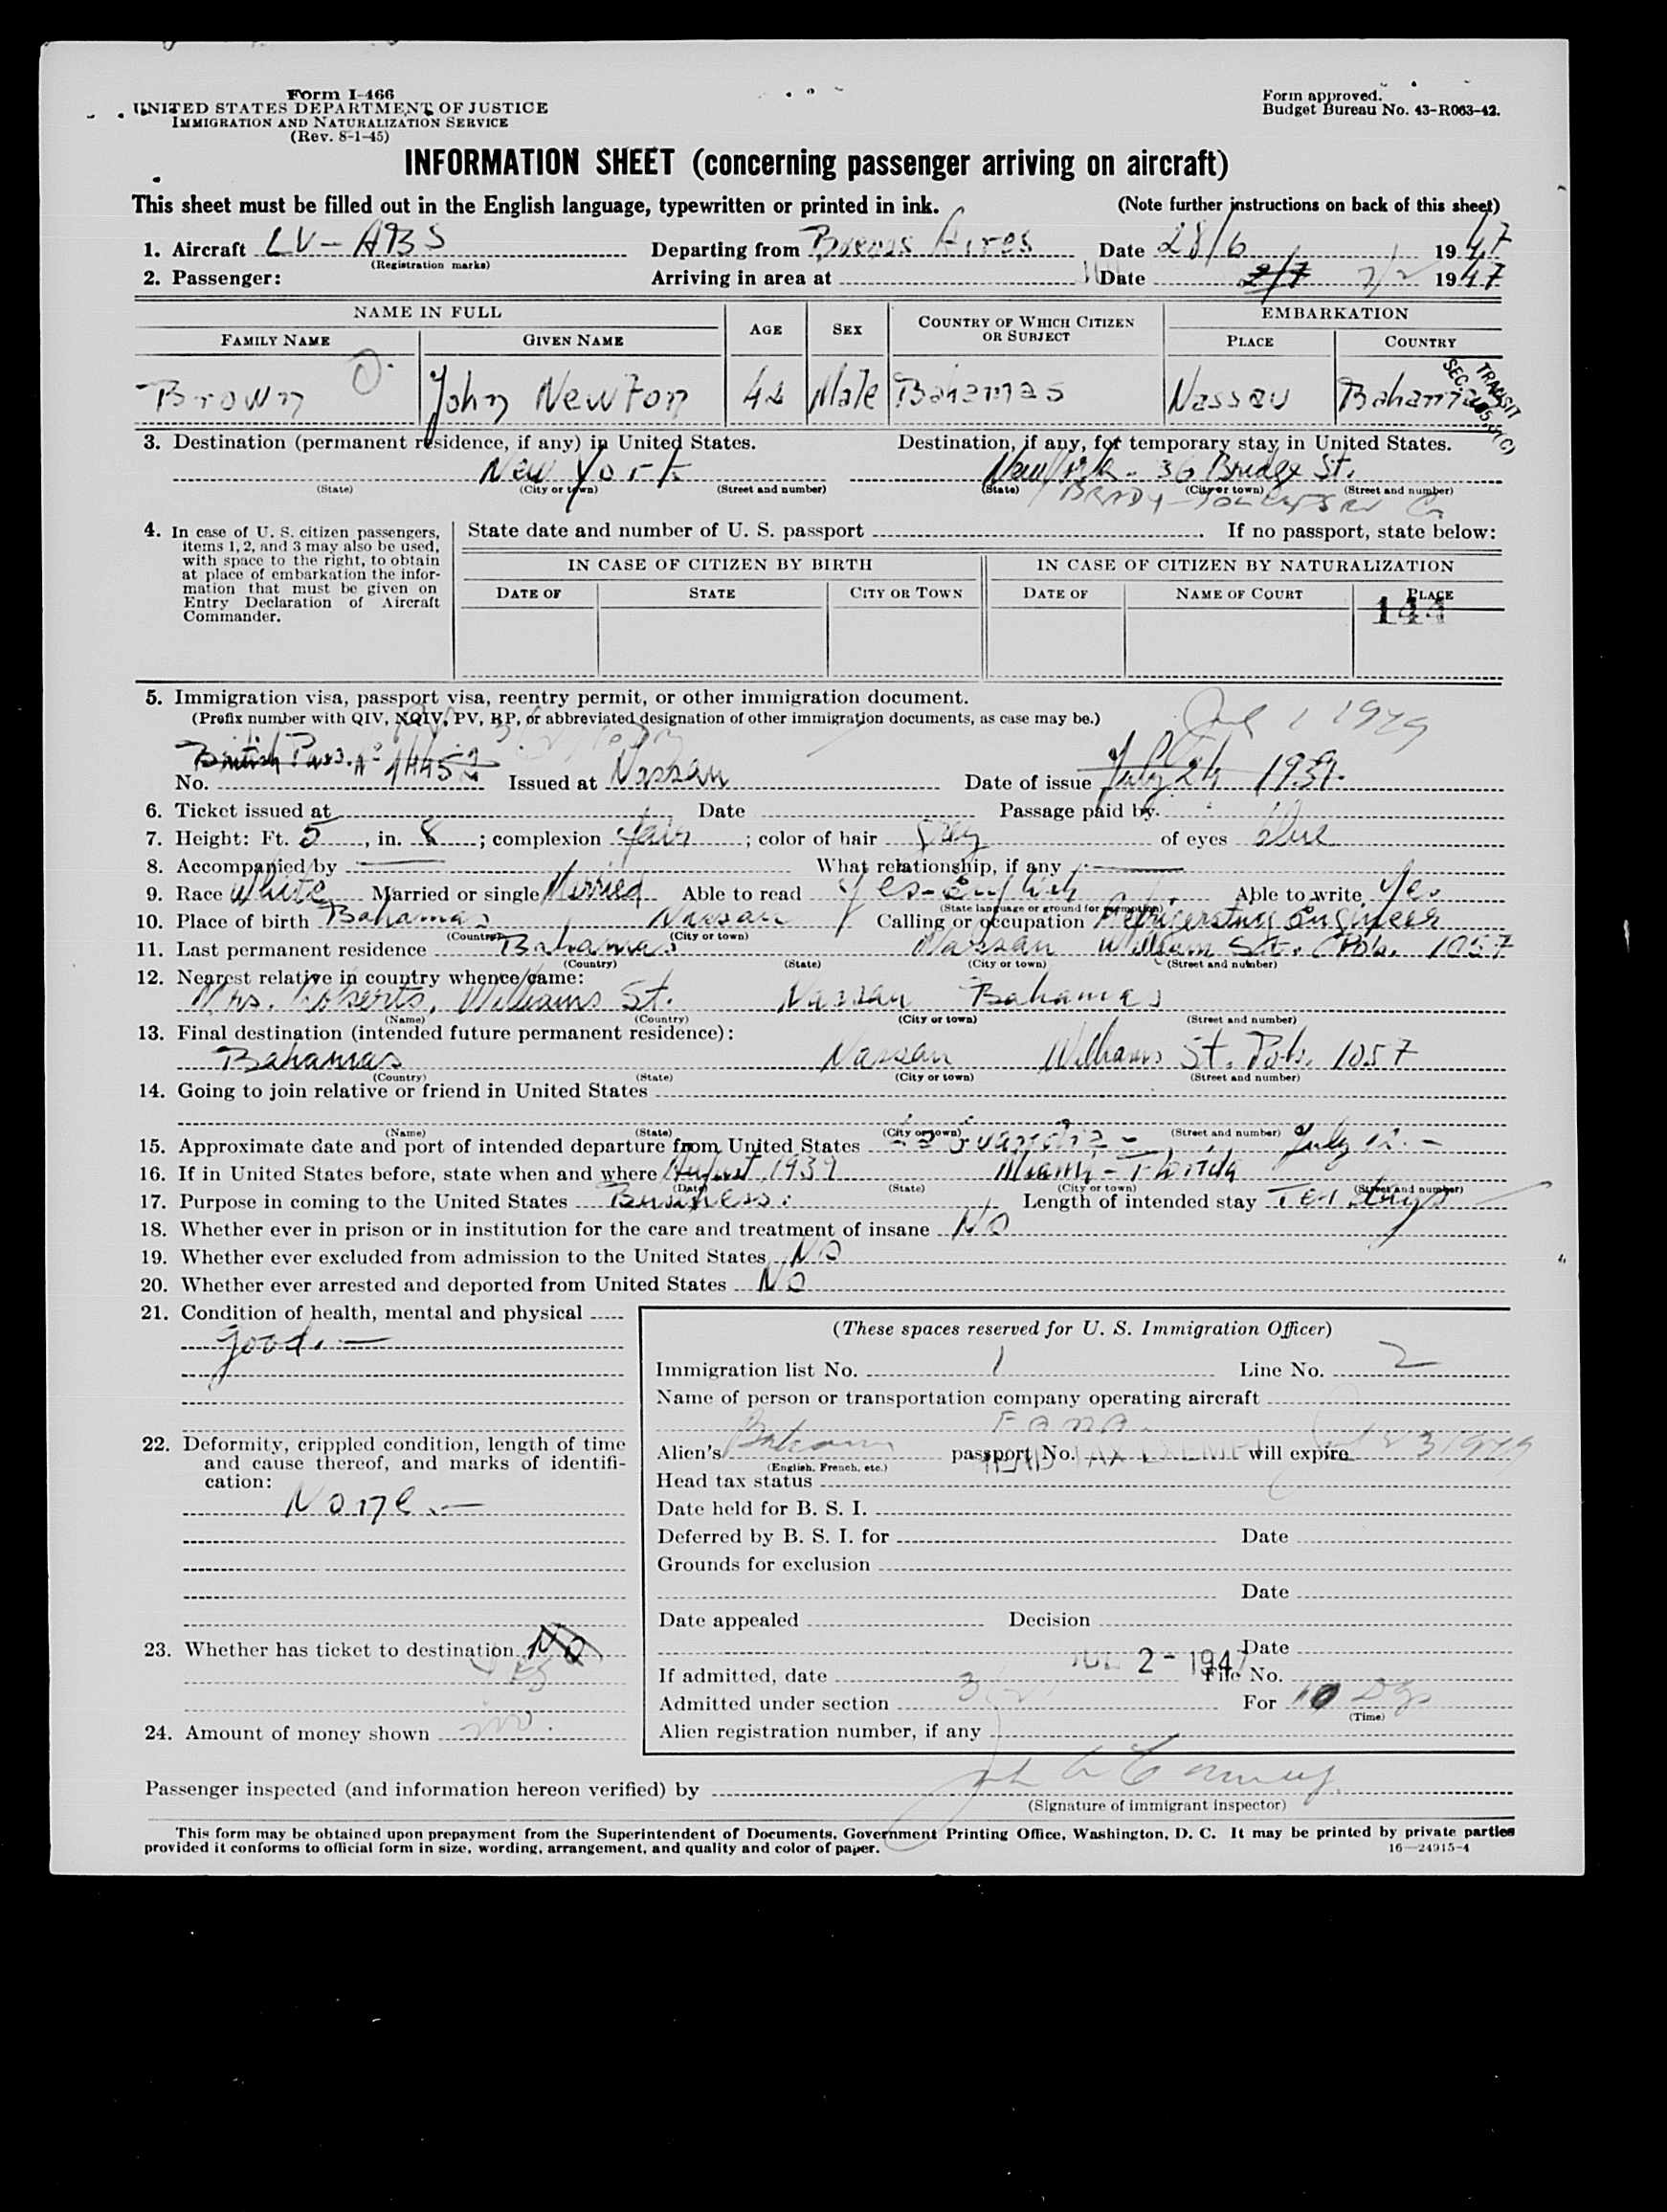 Form I-466
UNITED STATES DEPARTMENT OF JUSTICE
IMMIGRATION AND NATURALIZATION SERVICE
(Rev. 8-1-45)
Form approved.
Budget Bureau No. 43-R063-42.
INFORMATION SHEET (concerning passenger arriving on aircraft)
This sheet must be filled out in the English language, typewritten or printed in ink. (Note further instructions on back of this sheet)
1. Aircraft LV-ABS (Registration marks) Departing from Buenos Aires Date 28/6 1947
2. Passenger: Arriving in area at Date 2/7 7/2 1947
NAME IN FULL AGE SEX COUNTRY OF WHICH CITIZEN OR SUBJECT EMBARKATION
FAMILY NAME GIVEN NAME PLACE COUNTRY
Brown John Newton Male Bahamas Nassau Bahamas
TRANSIT
3. Destination (permanent residence, if any) in United States. Destination, if any, for temporary stay in United States.
New York New York - 36 Bridge St.
(State) (City or town) (Street and number) (State) (City or town) (Street and number)
4. In case of U. S. citizen passengers, items 1, 2, and 3 may also be used, with space to the right, to obtain at place of embarkation the information that must be given on Entry Declaration of Aircraft Commander.
State date and number of U. S. passport If no passport, state below:
IN CASE OF CITIZEN BY BIRTH IN CASE OF CITIZEN BY NATURALIZATION
DATE OF STATE CITY OR TOWN DATE OF NAME OF COURT PLACE
144
5. Immigration visa, passport visa, reentry permit, or other immigration document.
(Prefix number with QIV, NQIV, PV, RP, or abbreviated designation of other immigration documents, as case may be.)
British Pass.
No. Issued at Nassau Date of issue July 24 1939.
6. Ticket issued at Date Passage paid by
7. Height: Ft. 5, in. 8; complexion fair; color of hair Grey of eyes blue
8. Accompanied by What relationship, if any
9. Race White Married or single Married Able to read Yes-English Able to write Yes
(State language or ground for exemption)
10. Place of birth Bahamas Nassau Calling or occupation Refrigerating Engineer
(Country) (City or town)
11. Last permanent residence Bahamas Nassau William St. Pob. 1057
(Country) (State) (City or town) (Street and number)
12. Nearest relative in country whence came:
Mrs. Roberts, Williams St. Nassau Bahamas
(Name) (Country) (City or town) (Street and number)
13. Final destination (intended future permanent residence):
Bahamas Nassau Williams St. Pob. 1057
(Country) (State) (City or town) (Street and number)
14. Going to join relative or friend in United States
(Name) (State) (City or town) (Street and number)
15. Approximate date and port of intended departure from United States La Guardia - July 12.-
16. If in United States before, state when and where August, 1939 Miami - Florida
(Date) (State) (City or town) (Street and number)
17. Purpose in coming to the United States Business. Length of intended stay Ten days
18. Whether ever in prison or in institution for the care and treatment of insane NO
19. Whether ever excluded from admission to the United States NO
20. Whether ever arrested and deported from United States NO
21. Condition of health, mental and physical
good.-
22. Deformity, crippled condition, length of time and cause thereof, and marks of identification:
None.-
23. Whether has ticket to destination NO
Yes
24. Amount of money shown
(These spaces reserved for U. S. Immigration Officer)
Immigration list No. 1 Line No. 2
Name of person or transportation company operating aircraft
FAMA
Alien's passport No. will expire
(English, French, etc.)
HEAD TAX EXEMPT
Head tax status
Date held for B. S. I.
Deferred by B. S. I. for Date
Grounds for exclusion
Date
Date appealed Decision
Date
JUL 2 - 1947
If admitted, date File No.
Admitted under section For 10 Dys
(Time)
Alien registration number, if any
Passenger inspected (and information hereon verified) by
(Signature of immigrant inspector)
This form may be obtained upon prepayment from the Superintendent of Documents, Government Printing Office, Washington, D. C. It may be printed by private parties
provided it conforms to official form in size, wording, arrangement, and quality and color of paper. 16—24915-4